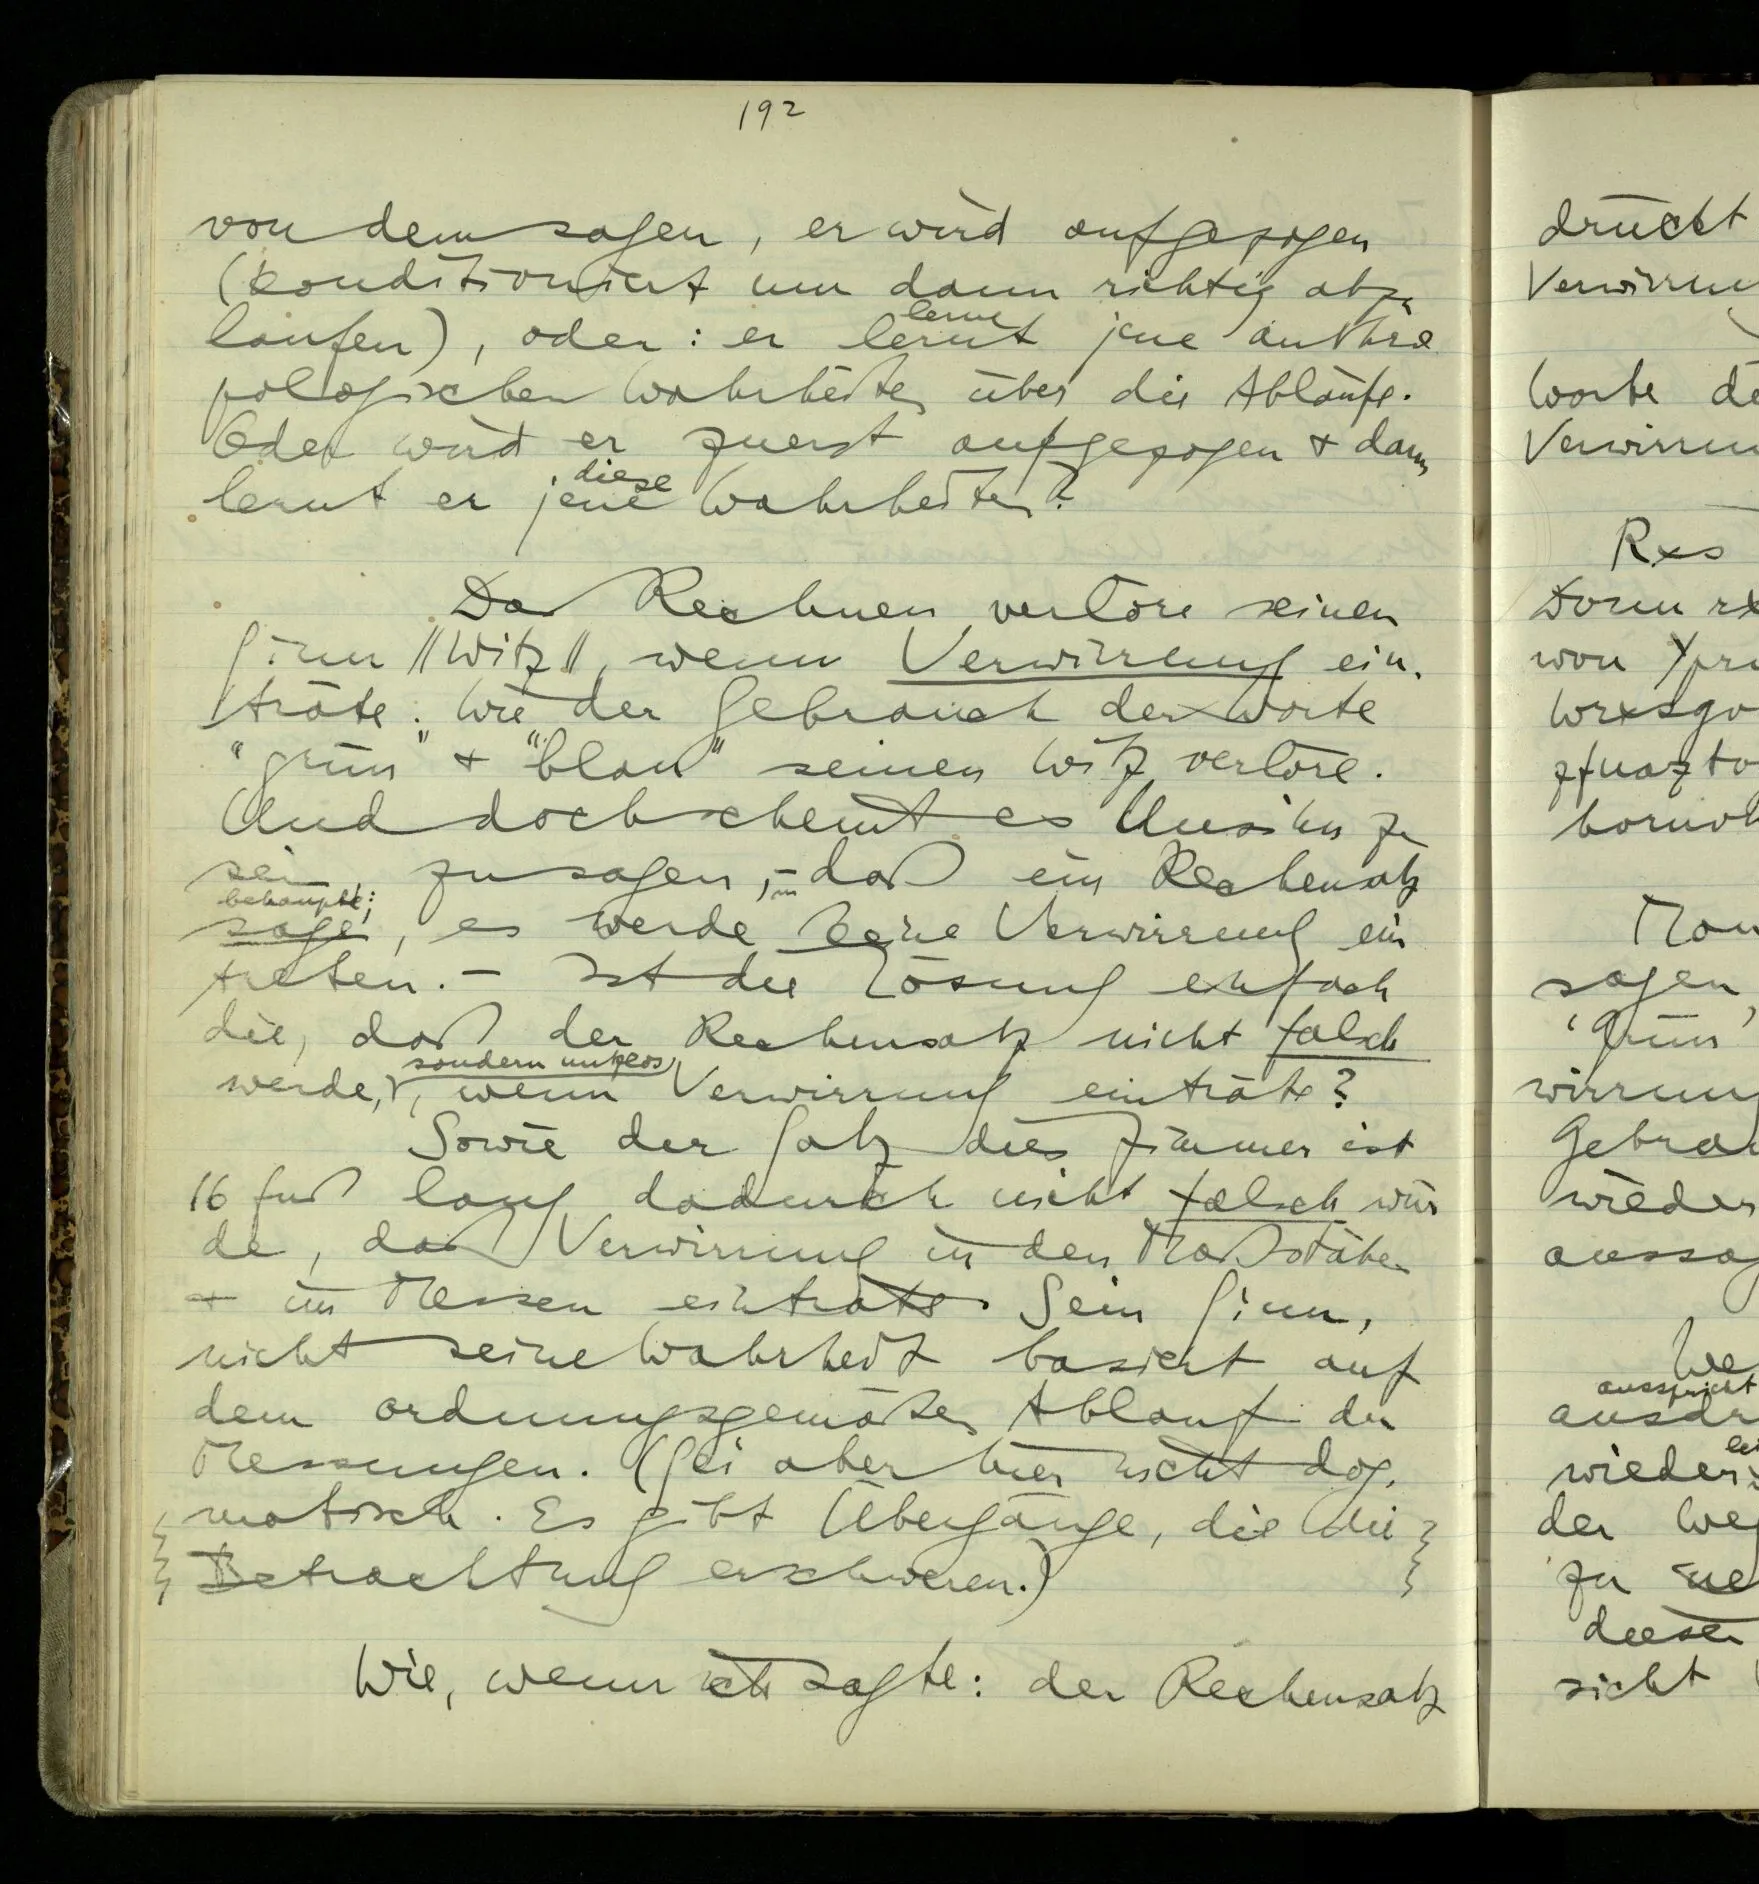 192
von dem sagen, er wird aufgezogen
(konditioniert um dann richtig abzu
laufen), oder: er lernt jene anthro
lerne
pologischen Wahrheiten über die Abläufe.
Oder wird er zuerst aufgezogen + dann
lernt er jene Wahrheiten?
diese
Das Rechnen verlöre seinen
Sinn //Witz//, wenn Verwirrung ein-
träte. Wie der Gebrauch der Worte
“grün” + “blau” seinen Witz verlöre.
Und doch scheint es Unsinn zu
sein zu sagen, – daß ein Rechensatz
behaupte:
sage, es werde keine Verwirrung ein
treten. – Ist die Lösung einfach
die, daß der Rechensatz nicht falsch
sondern nutzlos,
werde, wenn Verwirrung einträte?
Sowie der Satz dies Zimmer ist
16 Fuß lang dadurch nicht falsch wür
de, daß Verwirrung in den Maßstäben
+ im Messen einträte. Sein Sinn,
nicht seine Wahrheit basiert auf
dem ordnungsgemäßen Ablauf der
Messungen. (Sei aber hier nicht dog-
matisch. Es gibt Übergänge, die die
Betrachtung erschweren.)
Wie, wenn ich sagte: der Rechensatz
drückt
Verwirrun
Worte de
Verwirrun
Rxs
won
Man
sagen,
‘Grün’
wirrung
Gebrau
wieder
aussag
We
ausspricht
ausdr
wieder
der Weg
zu
dieser
nicht